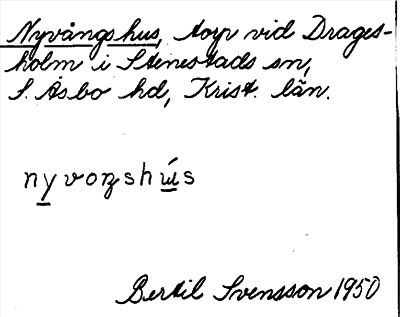 Nyvångshus, torp vid Drages-
holm i Stenestads sn,
S. Åsbo hd, Krist. län.
nyvoŋshús
Bertil Svensson 1950